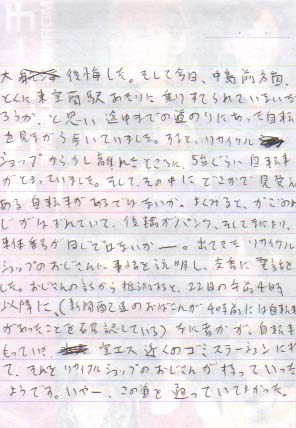 大後悔した。そして今日、中島前方面、
とくに東室蘭駅あたりに乗りすてられていないだ
ろうか、と思い途中までの道のりにあった自転
を見ながら歩いていました。すると、リサイクル
ショップから少し離れたところに、5台ぐらい自転車
がとまっていました。そして、その中にどこかで見覚え
ある自転車があるではないか。よくみると、かごのね
じがはずれていて、後輪がパンク、そしてなにより、
車体番号が同じではないかー。出てきたリサイクル
ショップのおじさんに事情を説明し、交番に電話を
した。おじさんの話から推測すると、22日の午前4時
以降に、(新聞配達のおばさんが4時前には自転車
があったことを確認している)なに者かが、自転車
もっていき、室工大近くのゴミステーションにす
て、それをリサイクルショップのおじさんが持っていった
ようです。いやー、この道を通っていてよかった。